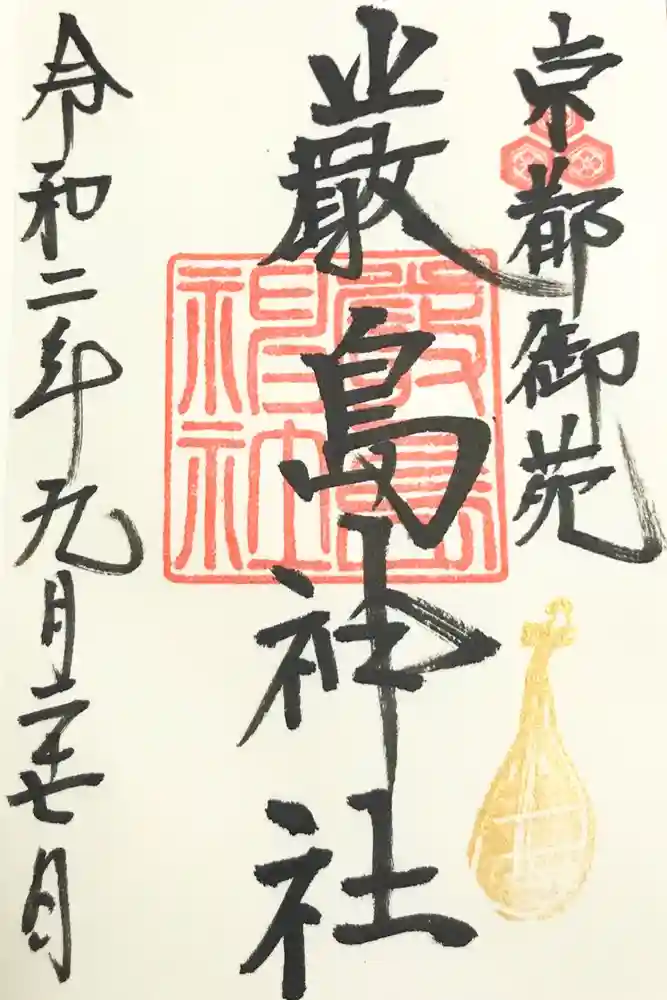 京都御苑
厳島神社
厳島
神社
令和二年九月二十七日